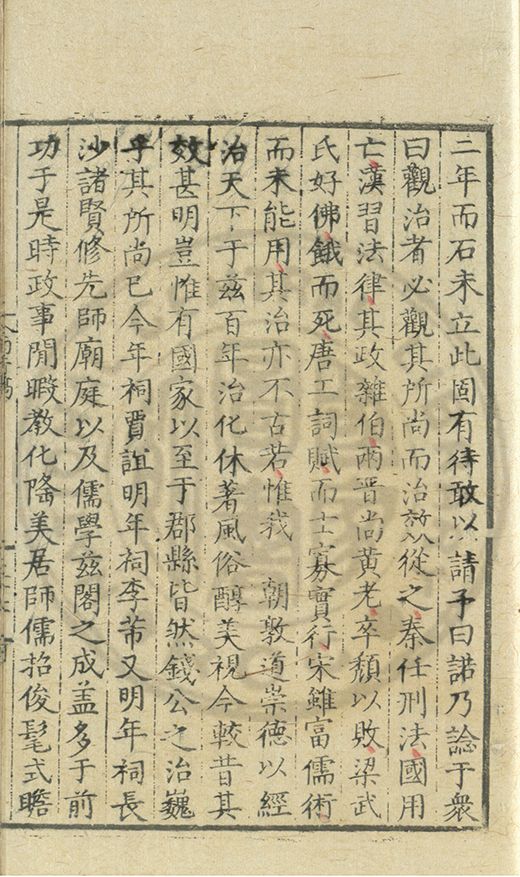 二年而石未立此固有待敢以請予曰諾乃諗于衆
曰觀治者必觀其所尚而治效從之秦任刑法國用
亡漢習法律其政雜伯兩晋尚黃老卒頹以敗梁武
氏好佛餓而死唐工詞賦而士寡實行宋雖富儒術
而未能用其治亦不古若惟我 朝敦道崇德以經
治天下于兹百年治化休著風俗醇美視今較昔其
效甚明豈惟有國家以至于郡縣皆然錢公之治巍
乎其所尚已今年祠賈誼明年祠李芾又明年祠長
沙諸賢修先師廟庭以及儒學兹閣之成盖多于前
功于是時政事閒暇教化隆美居師儒招俊髦式瞻